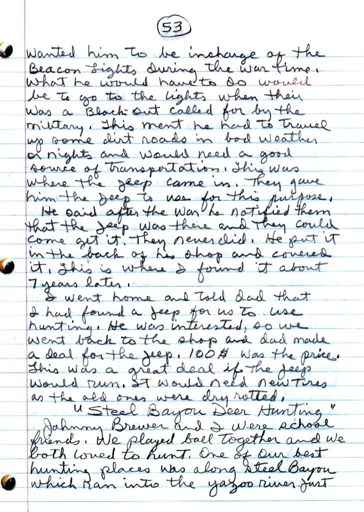 53
wanted him to be incharge of the
Beacon Lights During the war time.
what he would have to do would
be to go to the lights when their
was a Black out called for by the
military. This ment he had to travel
up some dirt roads in bad weather
or nights and would need a good
source of transportation. This was
where the Jeep came in. They gave
him the Jeep to use for this purpose.
He said after the war he notified them
that the Jeep was there and they could
come get it. They never did. He put it
in the back of his shop and covered
it. This is where I found it about
7 years later.
I went home and told dad that
I had found a Jeep for us to use
hunting. He was interested, so we
went back to the shop and dad made
a deal for the Jeep. 100$ was the price.
This was a great deal if the Jeep
would run. It would need new tires
as the old ones were dry rotted.
"Steel Bayou Deer Hunting"
Johnny Brewer and I were school
friends. We played ball together and we
both loved to hunt. One of our best
hunting places was along Steel Bayou
which ran into the yazoo river just